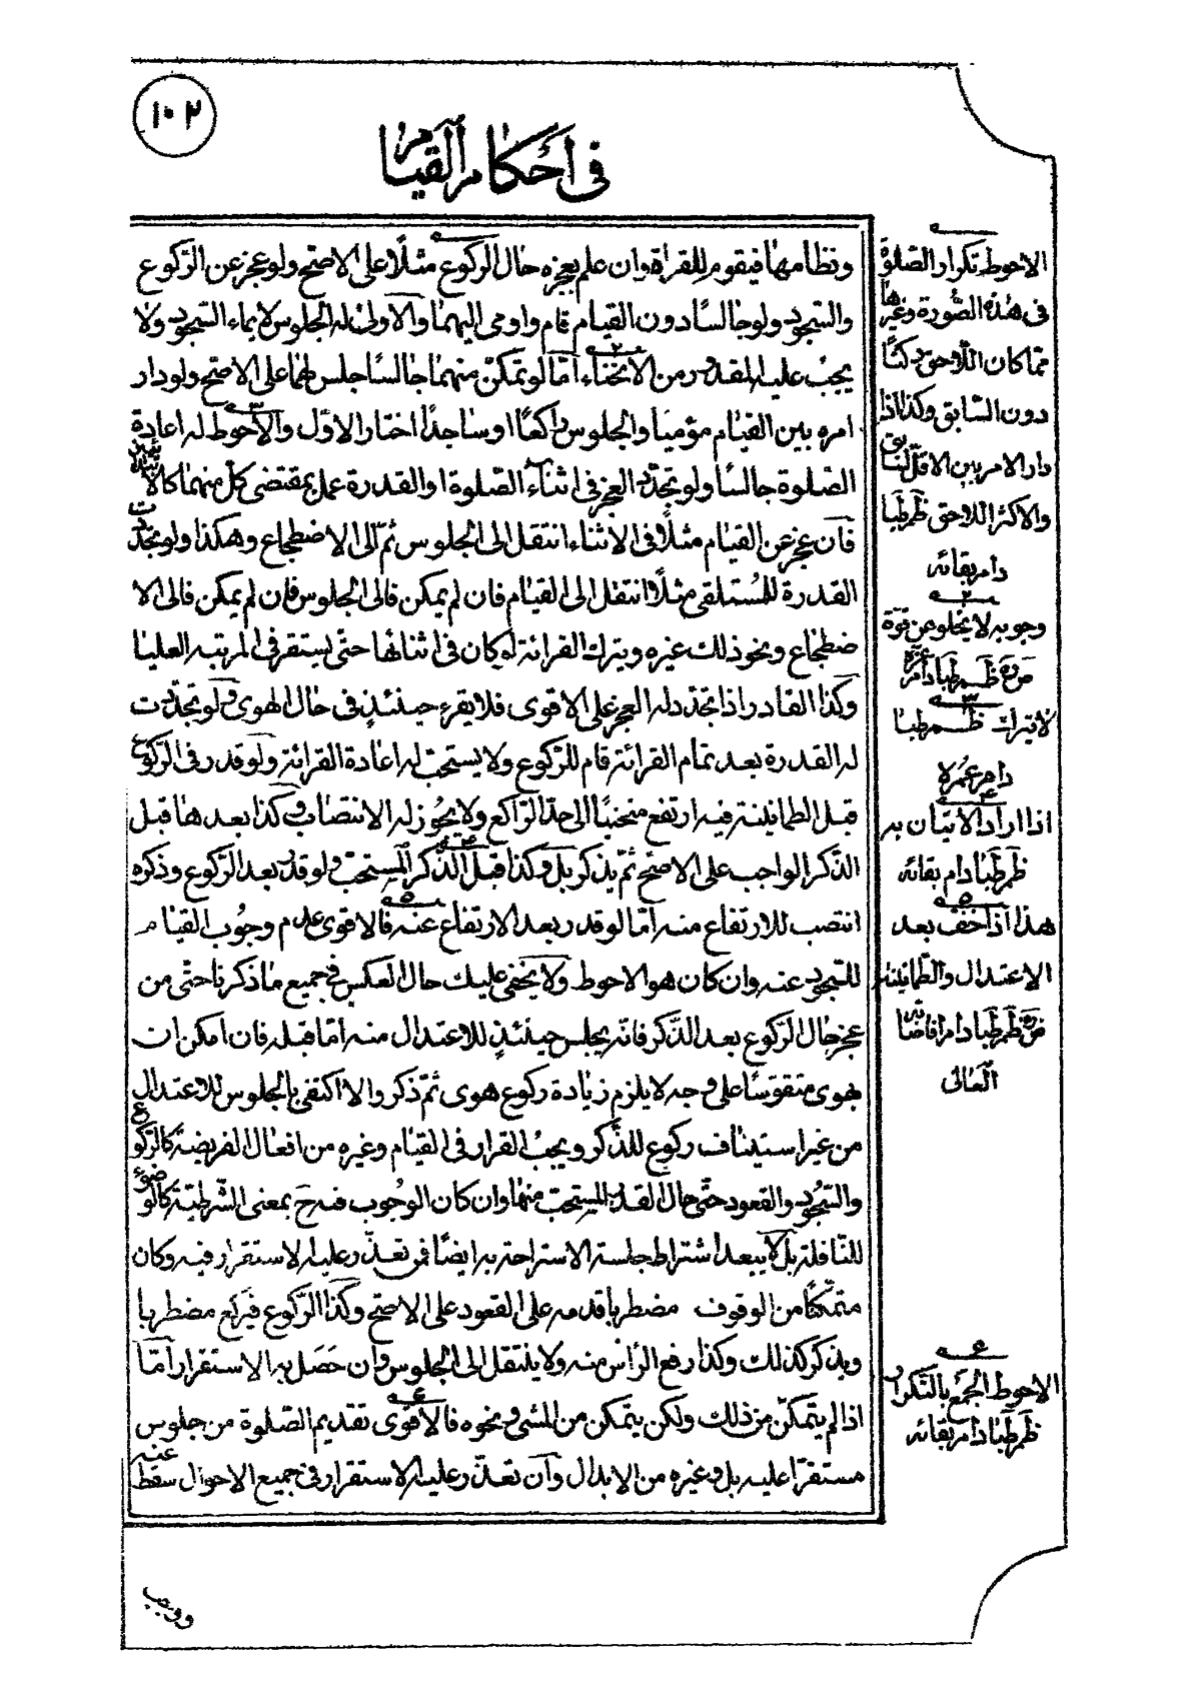 ١٠٢
في أحكام القيام
ونظامها فيقوم للقراءة وان علم بعجزه حال الركوع مثلًا على الاصح ولو عجز عن الركوع
والسجود ولو جالسًا دون القيام قام واومى اليهما والاولى له الجلوس لايماء السجود ولا
يجب عليه المقدور من الانحناء امّا لو تمكّن منهما جالسًا جلس لهما على الاصح ولو دار
امره بين القيام مؤميا والجلوس راكعًا وساجدًا اختار الاوّل والاحوط له اعادة
الصلوة جالسًا ولو تجدّد العجز في اثناء الصّلوة او القدرة عمل بمقتضى كلّ منهما كالاستقلال
فان عجز عن القيام مثلًا في الاثناء انتقل الى الجلوس ثمّ الى الاضطجاع وهكذا ولو تجدّدت
القدرة للمستلقي مثلًا انتقل الى القيام فان لم يمكن فالى الجلوس فان لم يمكن فالى الا
ضطجاع ونحو ذلك غيره ويترك القرائة لو كان في اثنائها حتّى يستقر في المرتبه العليا
وكذا القادر اذا تجدّد له العجز على الاقوى فلا يقرء حينئذٍ في حال الهوى ولو تجدّدت
له القدرة بعد تمام القرائة قام للركوع ولا يستحبّ له اعادة القرائة ولو قدر في الركوع
قبل الطمانينة فيه ارتفع منحنيًا الى حدّ الراكع ولا يجوز له الانتصاب وكذا بعدها قبل
الذّكر الواجب على الاصح ثمّ يذكر بل وكذا قبل الذّكر المستحبّ ولو قدر بعد الركوع وذكره
انتصب للارتفاع منه امّا لو قدر بعد الارتفاع عنه فالاقوى عدم وجوب القيام
للسجود عنه وان كان هو الاحوط ولا يخفى عليك حال العكس في جميع ما ذكرنا حتّى من
عجز حال الركوع بعد الذّكر فانّه يجلس حينئذٍ للاعتدال منه امّا قبله فان امكن ان
يهوى متقوسًا على وجه لا يلزم زيادة ركوع هوى ثمّ ذكر والا اكتفى بالجلوس للاعتدال
من غير استيناف ركوع للذّكر ويجب القرار في القيام وغيره من افعال الفريضة كالركوع
والسّجود والقعود حتّى حال القدر المستحبّ منها وان كان الوجوب فيه ح بمعنى الشّرطيّة كالوضوء
للنّافلة بل لا يبعد اشتراط جلسة الاستراحة به ايضًا فمن تعذّر عليه الاستقرار فيه وكان
متمكّنًا من الوقوف مضطربا قدمه على القعود على الاصح وكذا الركوع فيركع مضطربا
ويذكر كذلك وكذا رفع الرأس منه ولا ينتقل الى الجلوس وان حصل به الاستقرار امّا
اذا لم يتمكّن من ذلك ولكن يتمكن من المشي ونحوه فالاقوى تقديم الصّلوة من جلوس
مستقرّا عليه بل وغيره من الابدال وان تعذّر عليه الاستقرار في جميع الاحوال سقط عنه
ووجب
الاحوط تكرار الصّلوة
في هذه الصّورة وغيرها
ممّا كان اللاحق ركنًا
دون السّابق وكذا اذا
دار الامر بين الاقلّ السّابق
والاكثر اللاحق ظم طبا
دام بقائه
٢
وجوبه لا يخلو من قوة
ظم طبا دام عزه
٣
لا يترك ظم طبا
دام عمره
٤
اذا اراد الاتيان به
ظم طبا دام بقائه
٥
هذا اذا خفّ بعد
الاعتدال والطمانينة
ظم طبا دام افاضاته
العالى
٦
الاحوط الجمع بالتكرار
ظم طبا دام بقائه